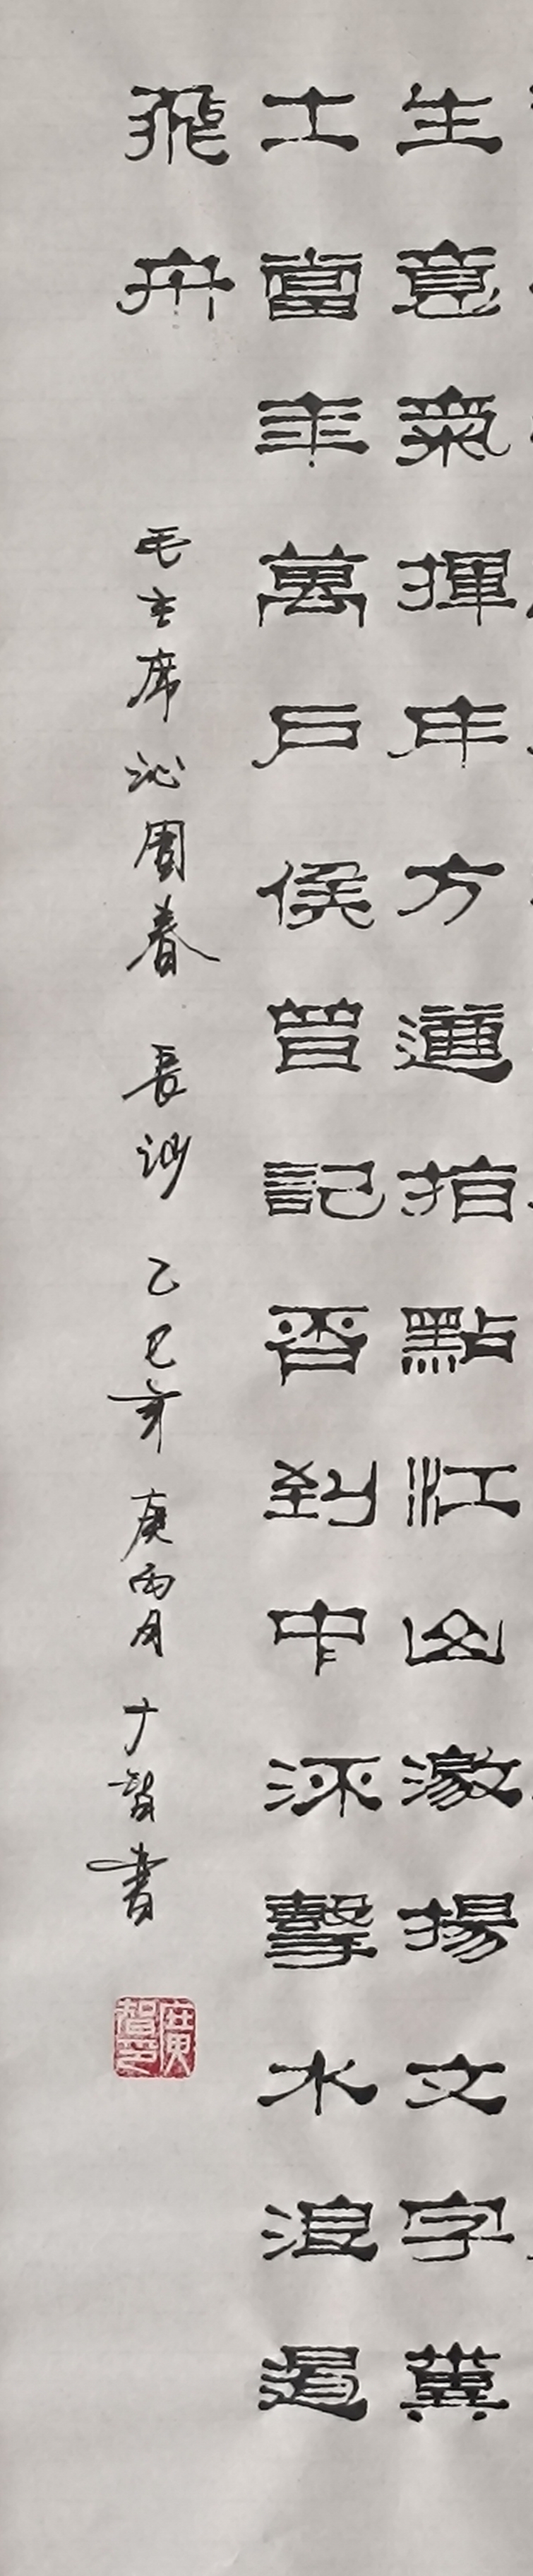 生意氣揮斥方遒指點江山激揚文字糞
土當年萬户侯曾記否到中流擊水浪遏
飛舟
毛主席沁園春 長沙 乙巳 月 广智書
廣智印